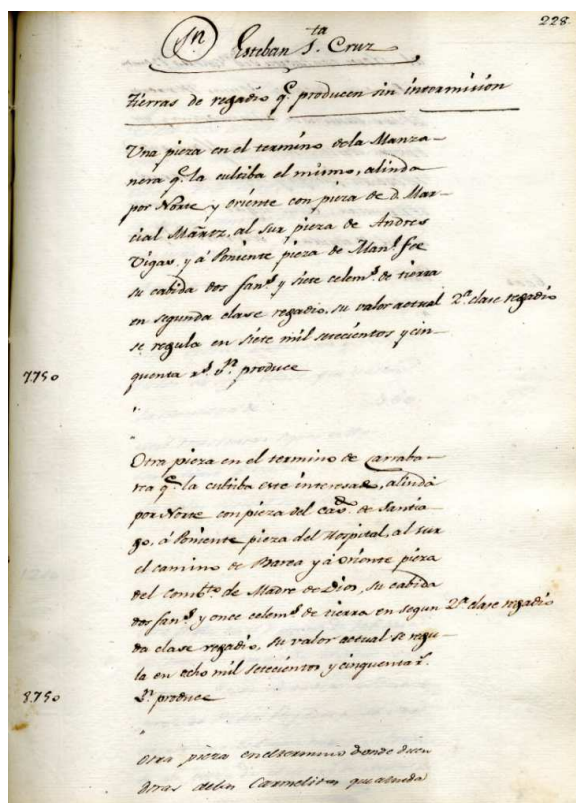 228.
Jn Esteban Sta. Cruz
tierras de regadio q.e producen sin intermision
Una pieza en el termino de la Manza-
nera q.e la cultiba el mismo, alinda
por Norte y oriente con pieza de d. Mar-
cial Mãrtz, al sur pieza de Andres
Vigas, y á Poniente pieza de Man.l Fee
su cabida dos fan.s y siete celem.s de tierra
en segunda clase regadio, su valor actual 2.a clase regadio
se regula en siete mil setecientos y cin-
7.750 quenta r.s v.n produce
Otra pieza en el termino de Carraba-
rea q.e la cultiba este interesado, alinda
por Norte con pieza del cav.do de Santia
go, á Poniente pieza del Hospital, al sur
el camino de Barea y á oriente pieza
del Comb.to de Madre de Dios, su cabida
dos fan.s y once celem.s de tierra en segun 2.a clase regadio
da clase regadio, su valor actual se regu-
la en ocho mil setecientos y cinquenta r.s
8.750 v.n produce
Otra pieza en el termino donde dicen
detras de los Carmelitas que alinda